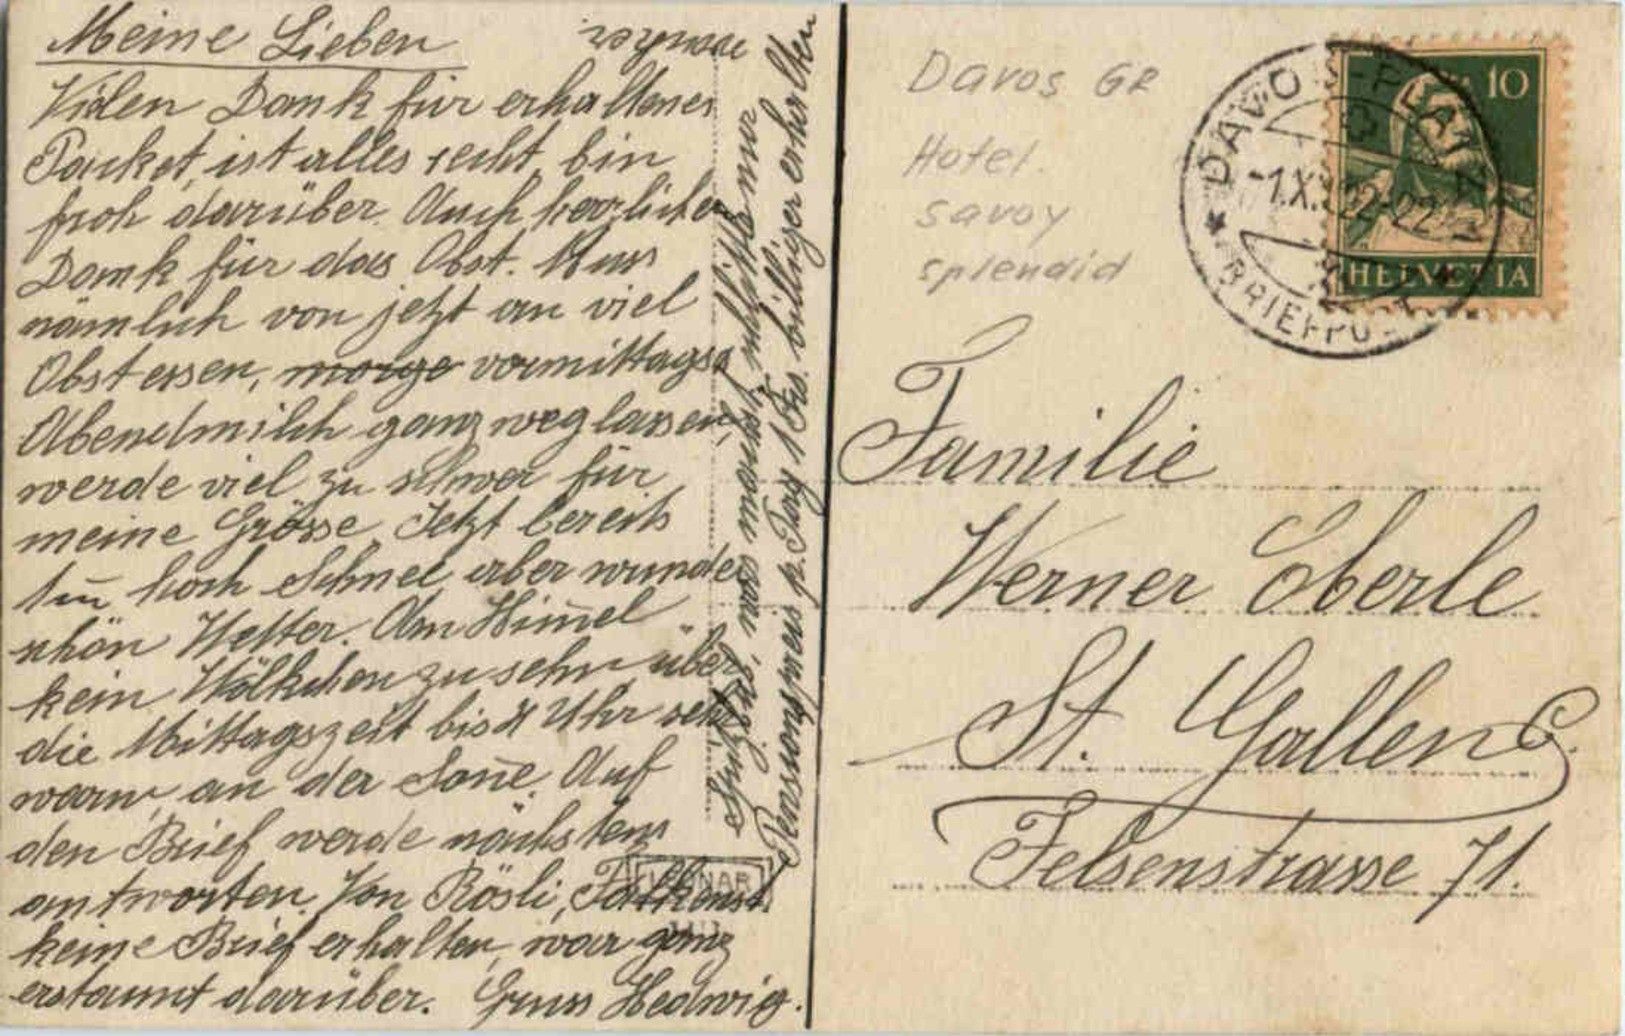 Meine Lieben
Vielen Dank für erhaltenes
Packet, ist alles recht, bin
froh darüber. Auch herzlichen
Dank für das Obst. Muss
nämlich von jetzt an viel
Obst essen, morge vormittags
Abendmilch ganz weglassen,
werde viel zu schwer für
meine Grösse. Jetzt bereits
1m̅ hoch Schnee aber wunder
schön Wetter. Am Him̅el
kein Wölkchen zu sehn, über
die Mittagszeit bis 4 Uhr sehr
warm, an der Son̅e. Auf
den Brief werde nächstens
antworten. Von Rösli, Falkenst.
keine Brief erhalten, war ganz
erstaunt darüber. Gruss Hedwig.
Pensionspreis p. Tag 1 Frs. billiger erhalten
Davos GR
Hotel
Savoy
splendid
DAVOS-PLATZ
-1.XI.22-22
BRIEFPOST
10
HELVETIA
Familie
Werner Eberle
St. Gallen O.
Felsenstrasse 71.